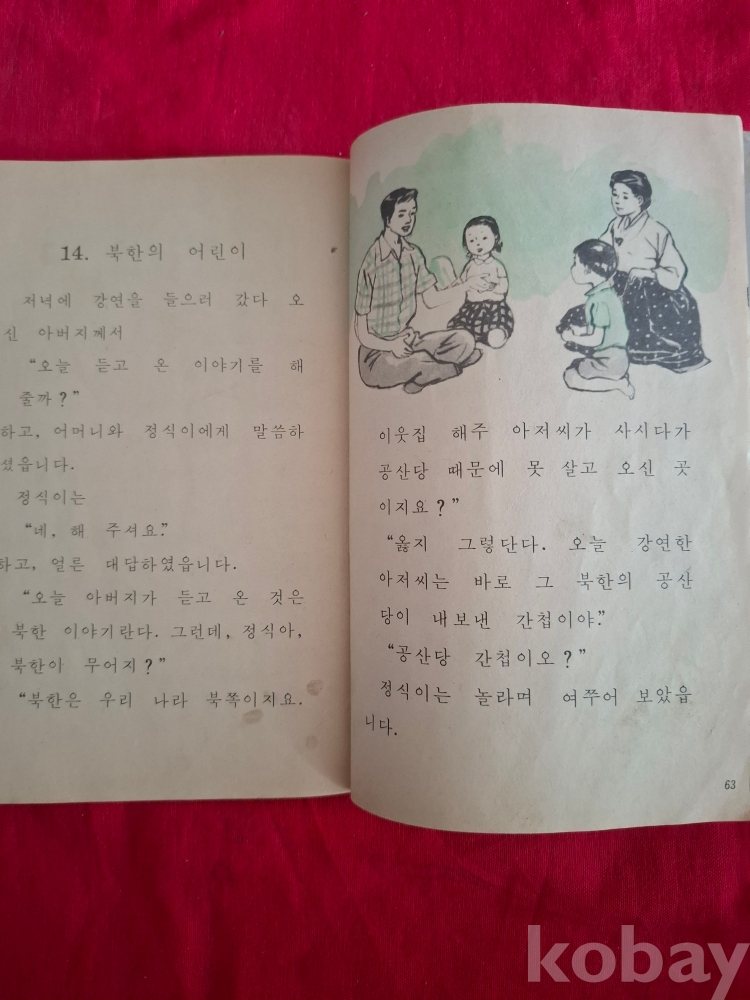 14. 북한의 어린이
저녁에 강연을 들으러 갔다 오
신 아버지께서
“오늘 듣고 온 이야기를 해
줄까?”
하고, 어머니와 정식이에게 말씀하
셨읍니다.
정식이는
“네, 해 주셔요.”
하고, 얼른 대답하였읍니다.
“오늘 아버지가 듣고 온 것은
북한 이야기란다. 그런데, 정식아,
북한이 무어지?”
“북한은 우리 나라 북쪽이지요.
이웃집 해주 아저씨가 사시다가
공산당 때문에 못 살고 오신 곳
이지요?”
“옳지 그렇단다. 오늘 강연한
아저씨는 바로 그 북한의 공산
당이 내보낸 간첩이야.”
“공산당 간첩이오?”
정식이는 놀라며 여쭈어 보았읍
니다.
63
kobay